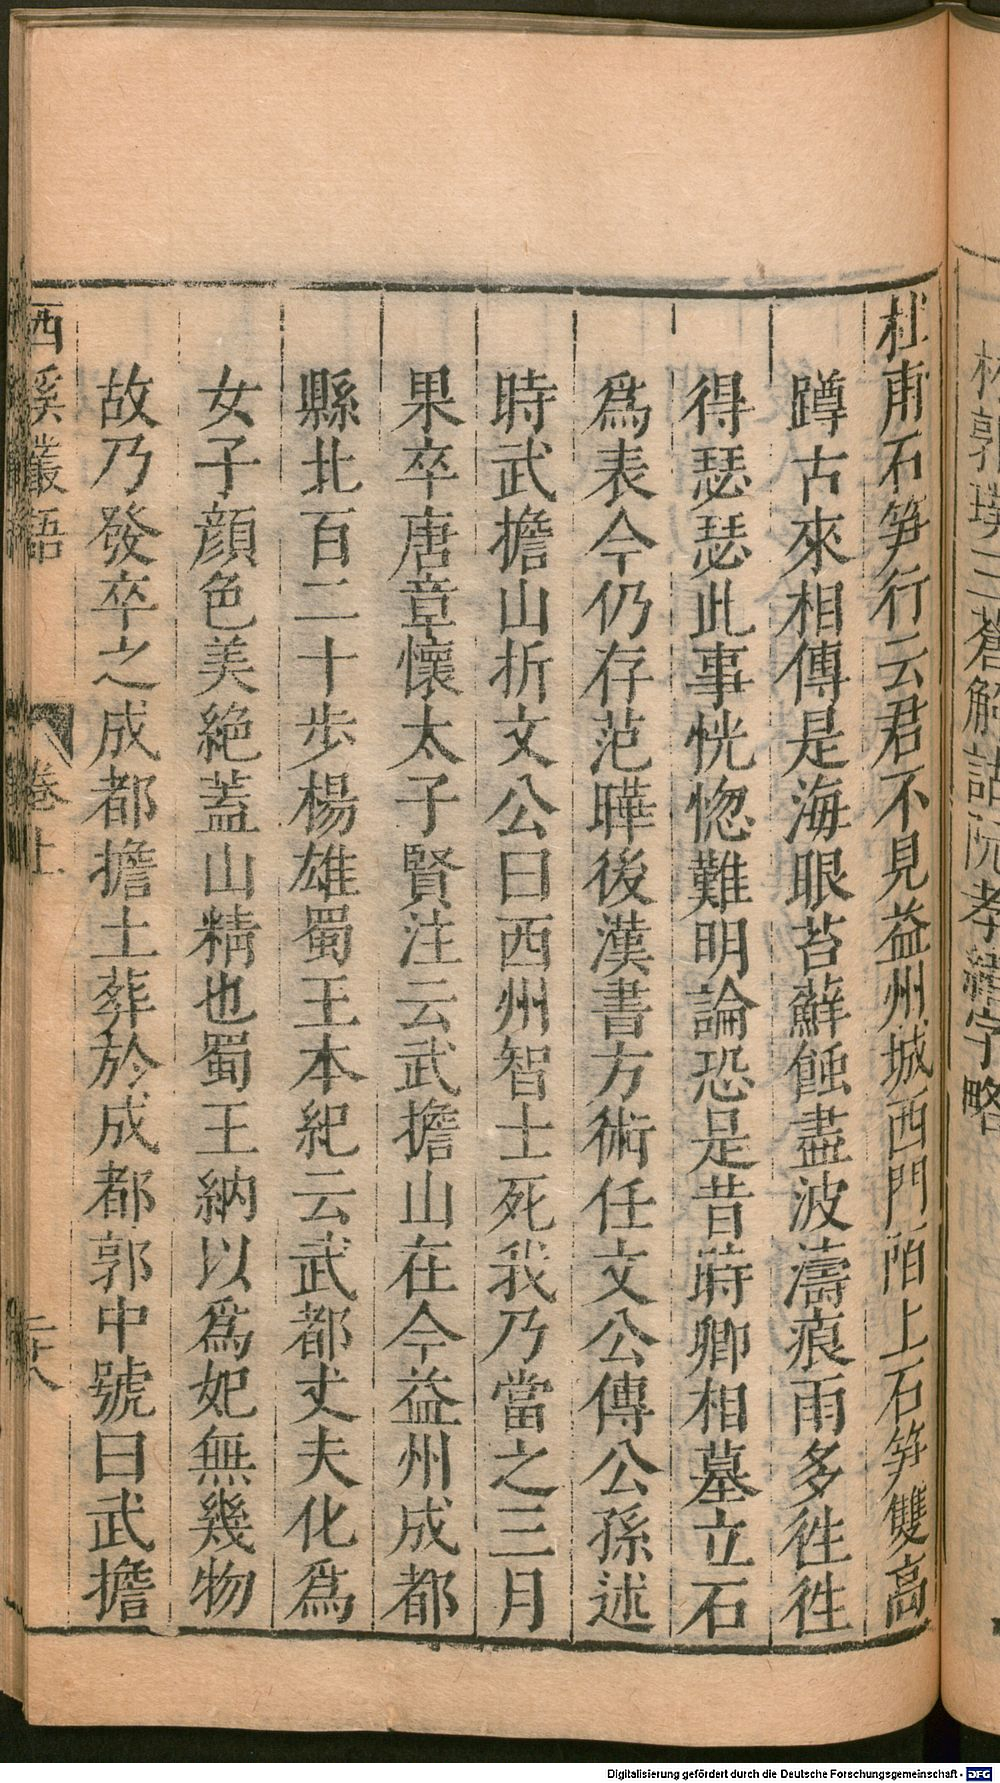 林郭璞三蒼解詁阮孝緒字略
杜甫石笋行云君不見益州城西門陌上石笋雙高
蹲古來相傳是海眼苔蘚蝕盡波濤痕雨多徃徃
得瑟瑟此事恍惚難明論恐是昔時卿相墓立石
爲表今仍存范曄後漢書方術任文公傳公孫述
時武擔山折文公曰西州智士死我乃當之三月
果卒唐章懷太子賢注云武擔山在今益州成都
縣北百二十步楊雄蜀王本紀云武都丈夫化爲
女子顔色美絶蓋山精也蜀王納以爲妃無幾物
故乃發卒之成都擔土葬於成都郭中號曰武擔
西溪叢語 卷上 二十八
Digitalisierung gefördert durch die Deutsche Forschungsgemeinschaft - DFG